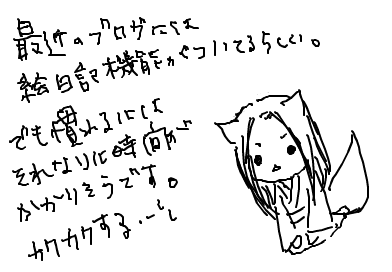 最近のブログには
絵日記機能がついてるらしい。
でも慣れるには
それなりに時間が
かかりそうです。
カクカクする…